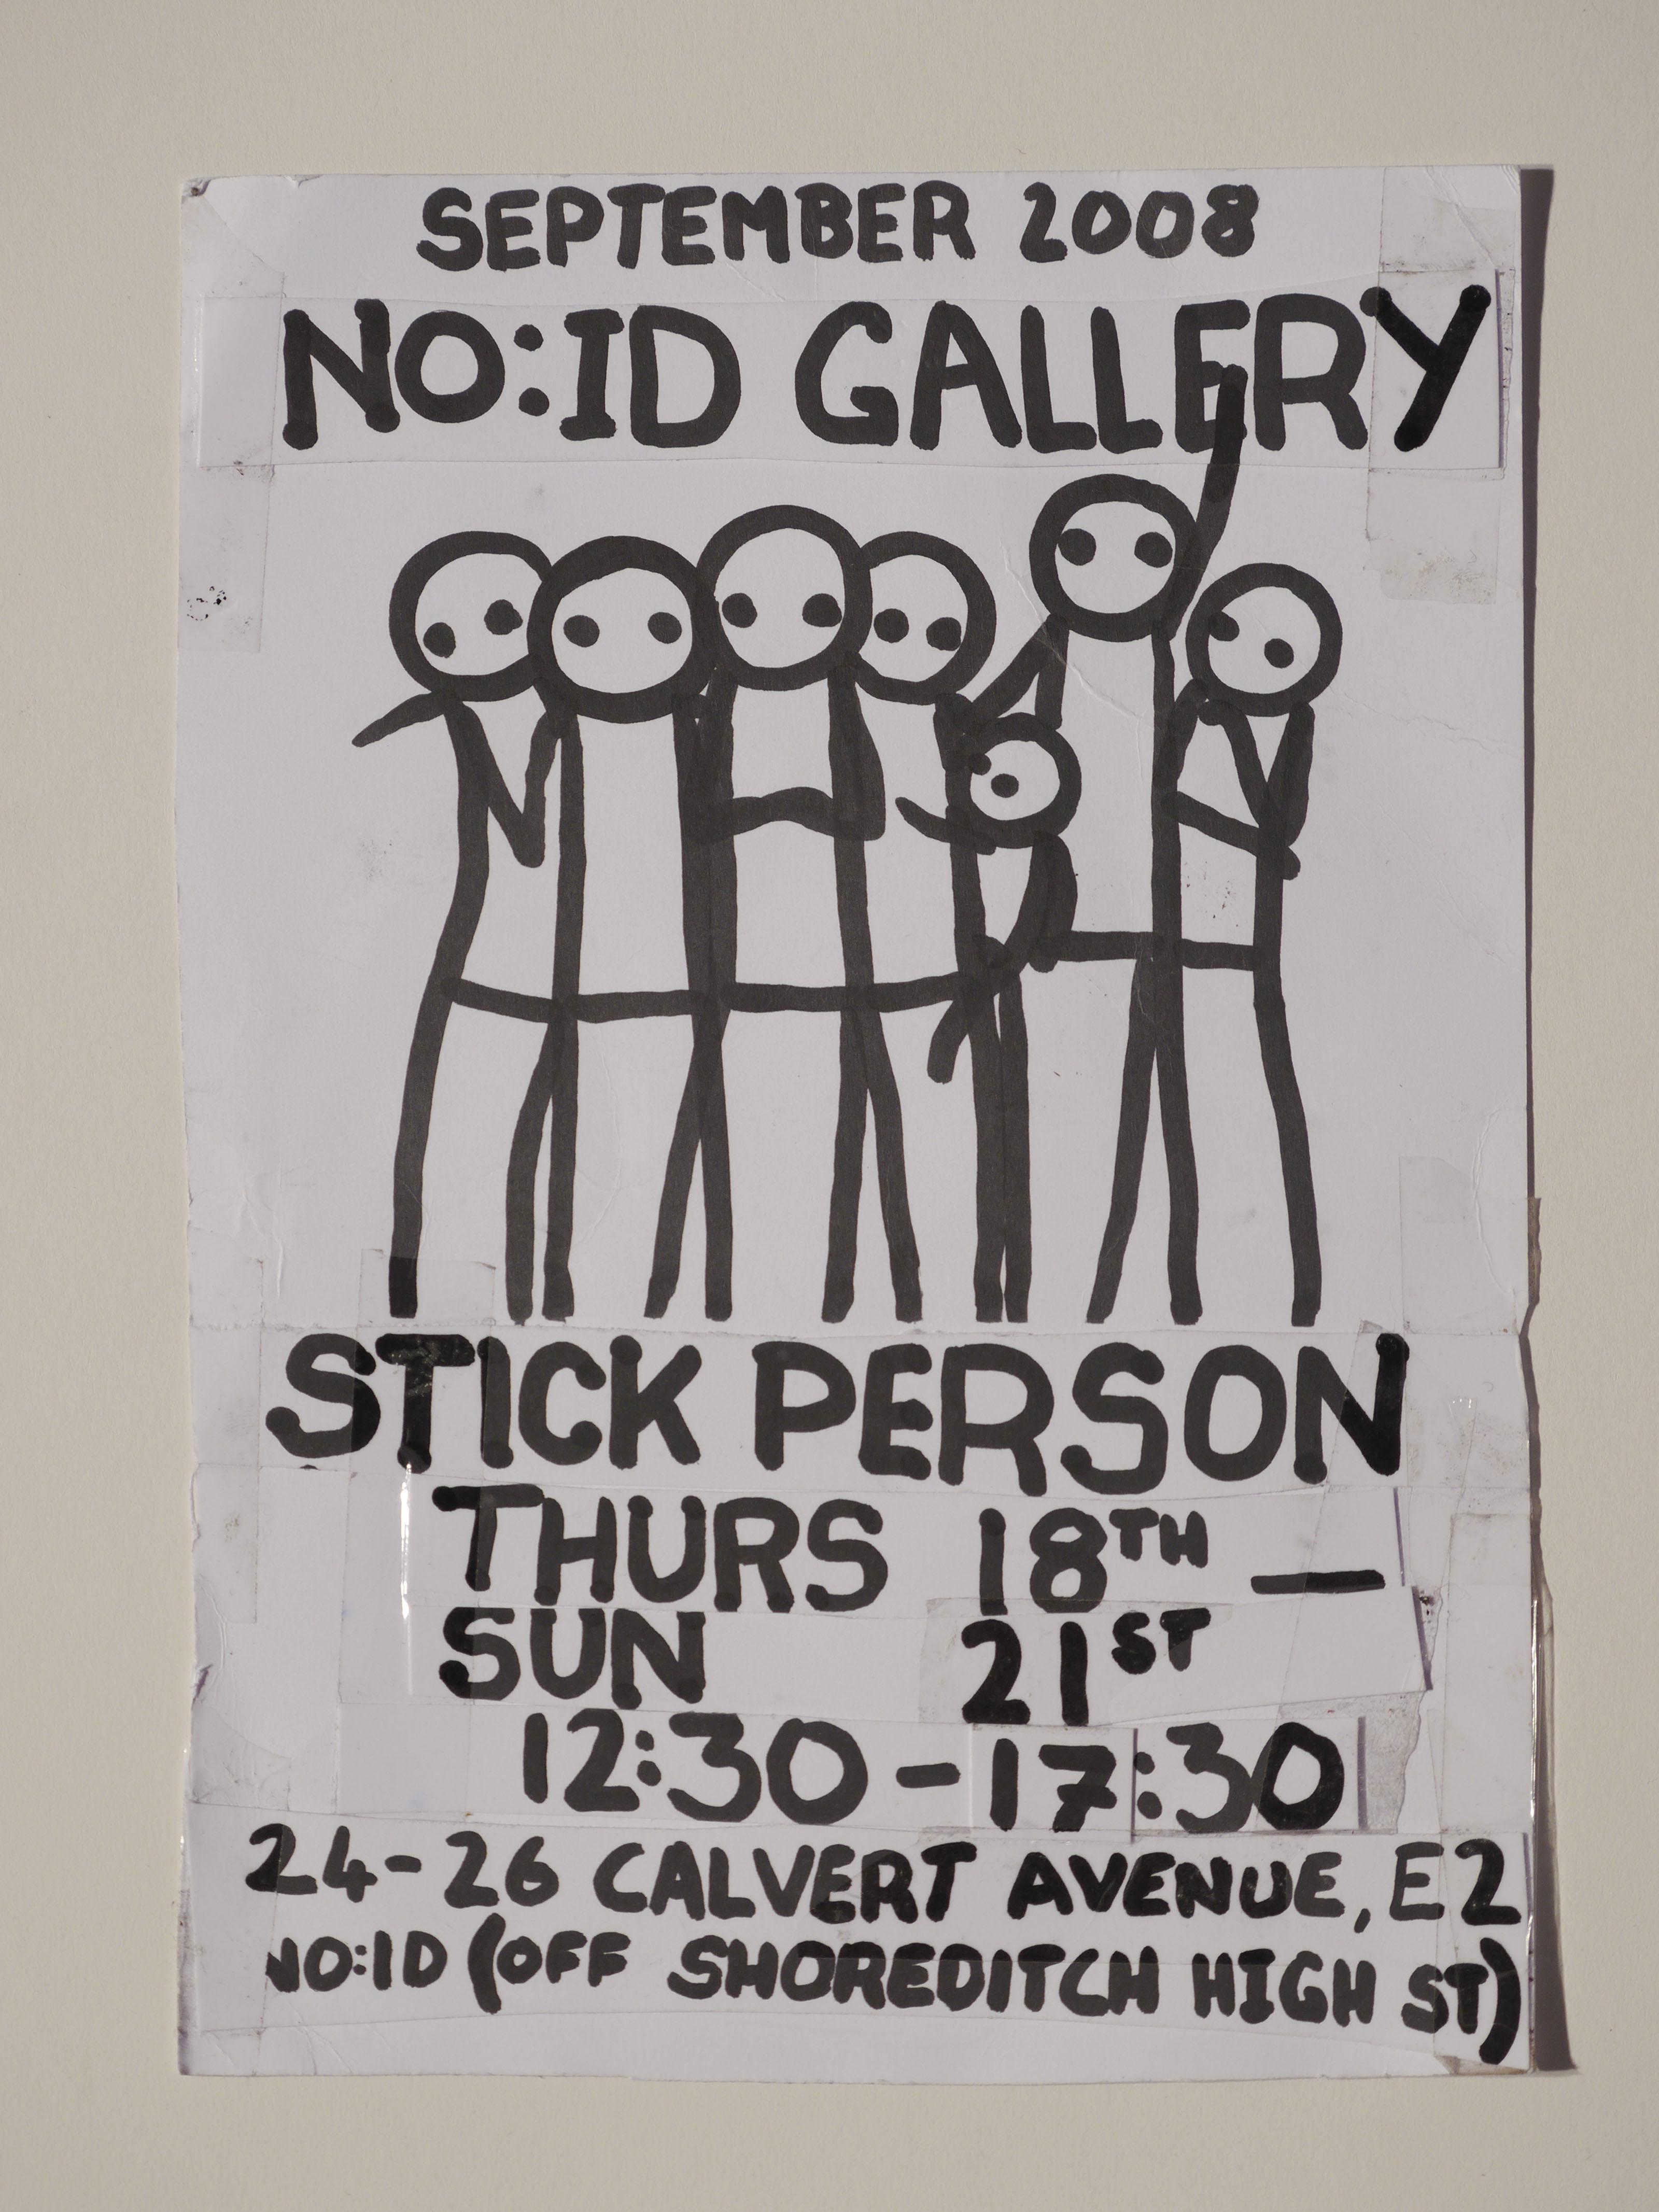 SEPTEMBER 2008
NO:ID GALLERY
STICK PERSON
THURS 18TH —
SUN 21ST
12:30-17:30
24-26 CALVERT AVENUE, E2
NO:ID (OFF SHOREDITCH HIGH ST)